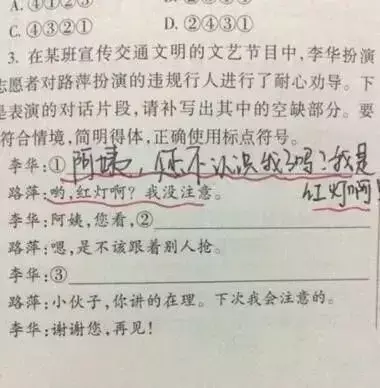 A.④①②③
C.④③②①    D.②④③①
3. 在某班宣传交通文明的文艺节目中,李华扮演
志愿者对路萍扮演的违规行人进行了耐心劝导。下
是表演的对话片段,请补写出其中的空缺部分。要
符合情境,简明得体,正确使用标点符号。
李华:① 阿姨,您不认识我了吗?我是
红灯啊!
路萍:哟,红灯啊?我没注意。
李华:阿姨,您看,②
路萍:嗯,是不该跟着别人抢。
李华:③
路萍:小伙子,你讲的在理。下次我会注意的。
李华:谢谢您,再见!